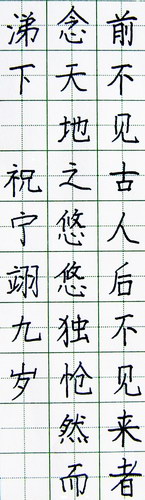 前不见古人后不见来者
念天地之悠悠独怆然而
涕下 祝宁翊九岁